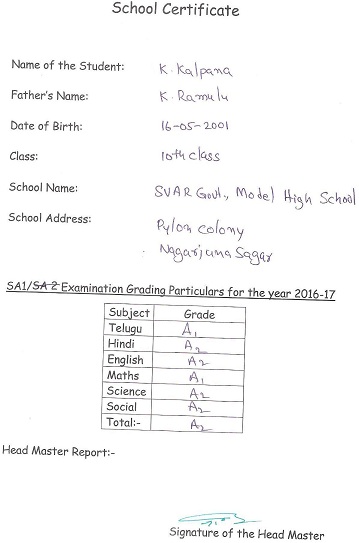 School Certificate
Name of the Student: K. Kalpana
Father's Name: K. Ramulu
Date of Birth: 16-05-2001
Class: 10th class
School Name: SVAR Govt., Model High School
School Address: Pylon colony
Nagarjuna Sagar
SA1/SA 2 Examination Grading Particulars for the year 2016-17
Subject Grade
Telugu A1
Hindi A2
English A2
Maths A1
Science A2
Social A2
Total:- A2
Head Master Report:-
Signature of the Head Master